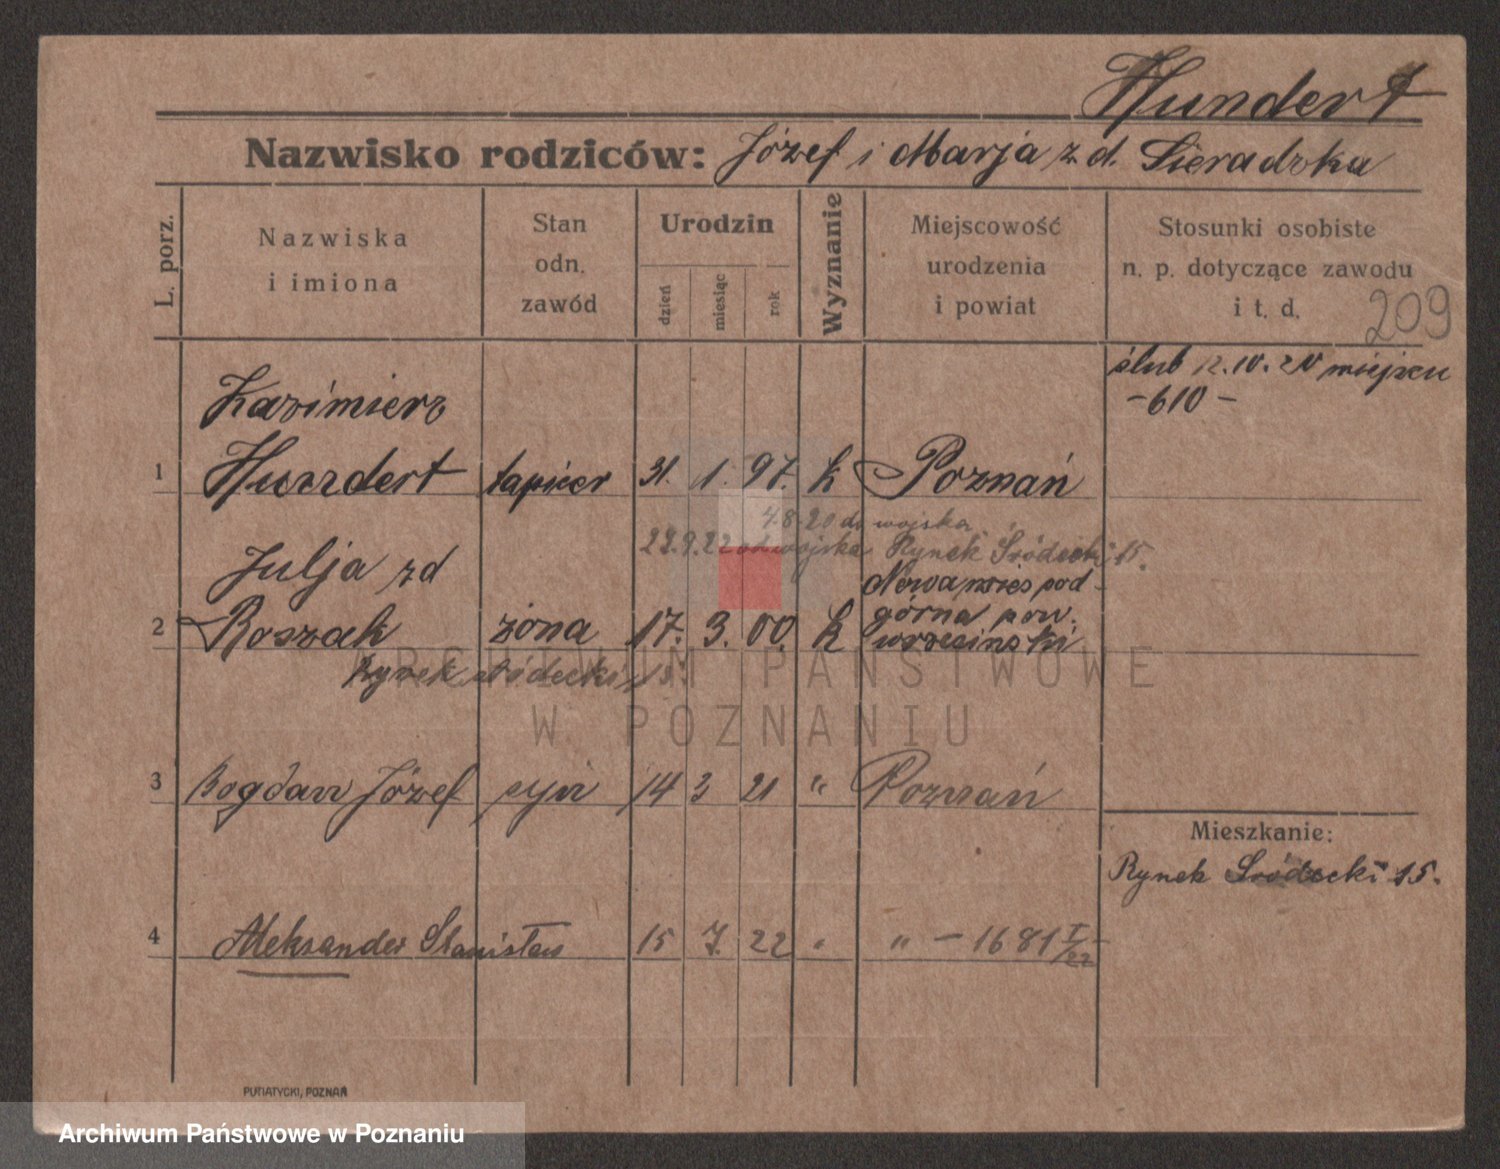 Hundert
Nazwisko rodziców: Józef i Marja z d. Sieradzka
L. porz.
Nazwiska
i imiona
Stan
odn.
zawód
Urodzin
dzień
miesiąc
rok
Wyznanie
Miejscowość
urodzenia
i powiat
Stosunki osobiste
n. p. dotyczące zawodu
i t. d.
209
ślub 12.10.20 miejscu
-610-
Kazimierz
1 Hundert tapicer 31. 1. 97. k Poznań
4.8.20 do wojska
22.9.22 od wojska Rynek Śródecki 15.
Julja zd
Nowawieś pod-
górna pow.
2 Roszak żona 17. 3. 00. k wrzesiński
Rynek Śródecki 15
ARCHIWUM PAŃSTWOWE
W POZNANIU
3 Bogdan Józef syn 14 3 21 " Poznań
Mieszkanie:
Rynek Śródecki 15.
4 Aleksander Stanisław 15 7. 22 " " - 1681 I/22 -
PUTIATYCKI, POZNAŃ
Archiwum Państwowe w Poznaniu